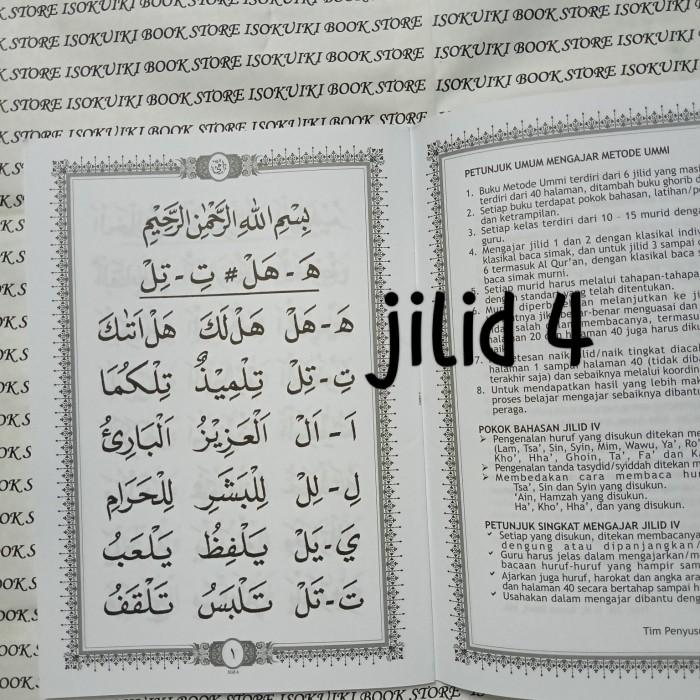 K STORE ISOKUIKI BOOK STORE ISOKUIKI BOOK STORE ISOKUIKI
STORE ISOKUIKI BOOK STORE ISOKUIKI BOOK STORE ISOKUIKI
STORE ISOKUIKI BOOK STORE ISOKUIKI BOOK STORE ISOKUIKI
STORE ISOKUIKI BOOK STORE ISOKUIKI BOOK STORE ISOKUIKI
بِسْمِ اللهِ الرَّحْمٰنِ الرَّحِيْمِ
هَـ - هَلْ # تِـ - تِلْ
هَـ - هَلْ هَلْ لَكَ هَلْ اَتٰىكَ
تِـ - تِلْ تِلْمِيْذٌ تِلْكُمَا
اَ - اَلْ اَلْعَزِيْزُ اَلْبَارِئُ
لِـ - لِلْ لِلْبَشَرِ لِلْحَرَامِ
يَـ - يَلْ يَلْفِظُ يَلْعَبُ
تَـ - تَلْ تَلْبَسُ تَلْقَفُ
١
jilid 4
PETUNJUK UMUM MENGAJAR METODE UMMI
1. Buku Metode Ummi terdiri dari 6 jilid yang
terdiri dari 40 halaman, ditambah buku ghorib
2. Setiap buku terdapat pokok bahasan,
dan ketrampilan.
3. Setiap kelas terdiri dari 10 - 15 murid
guru.
4. Mengajar jilid 1 dan 2 dengan klasikal
klasikal baca simak, dan untuk jilid 3 sampai
6 termasuk Al Qur'an, dengan klasikal baca
baca simak murni.
5. Setiap murid harus melalui tahapan-tahapan
dengan standar telah ditentukan.
melanjutkan ke
benar menguasai dan
salah membacanya,
halaman 20 dan halaman 40 juga harus
7.
halaman 1 sampai halaman 40 (tidak
terakhir saja) dan sebaiknya melalui
8. Untuk mendapatkan hasil yang lebih
proses belajar mengajar sebaiknya
peraga.
POKOK BAHASAN JILID IV
➢ Pengenalan huruf yang disukun ditekan
(Lam, Tsa', Sin, Syin, Mim, Wawu, Ya',
Kho', Hha', Ghoin, Ta', Fa' dan
➢ Pengenalan tanda tasydid/syiddah ditekan
➢ Membedakan cara membaca
Tsa', Sin dan Syin yang disukun.
'Ain, Hamzah yang disukun.
Ha', Kho', Hha', dan yang disukun.
PETUNJUK SINGKAT MENGAJAR JILID IV
✓ Setiap yang disukun, ditekan membacanya
dengung atau dipanjangkan
✓ Guru harus jelas dalam mengajarkan
bacaan huruf-huruf yang hampir
✓ Ajarkan juga huruf, harokat dan angka
dan halaman 40 secara bertahap sampai
✓ Usahakan dalam mengajar dibantu
Tim